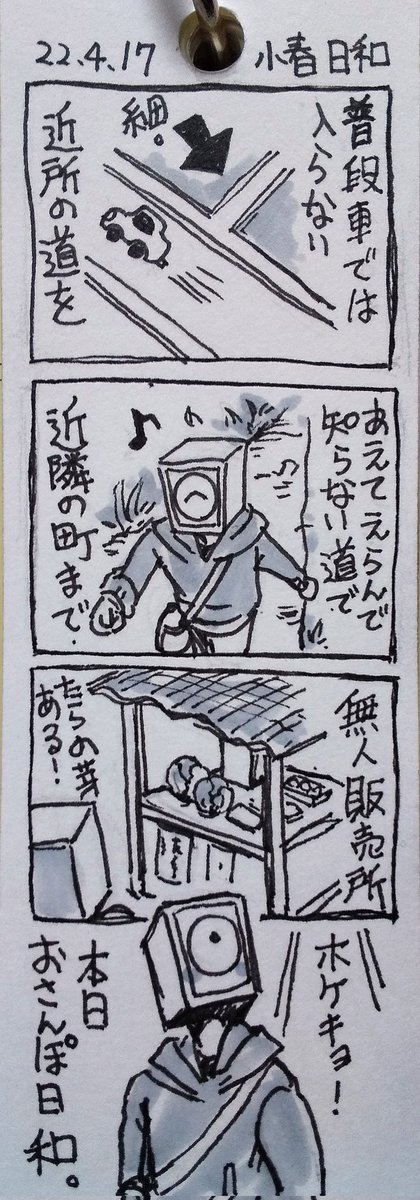 22.4.17
小春日和
普段車では
入らない
細。
近所の道を
あえてえらんで
知らない道で
近隣の町まで.
無人販売所
たらの芽
ある!
ホケキョ!
本日
おさんぽ日和。